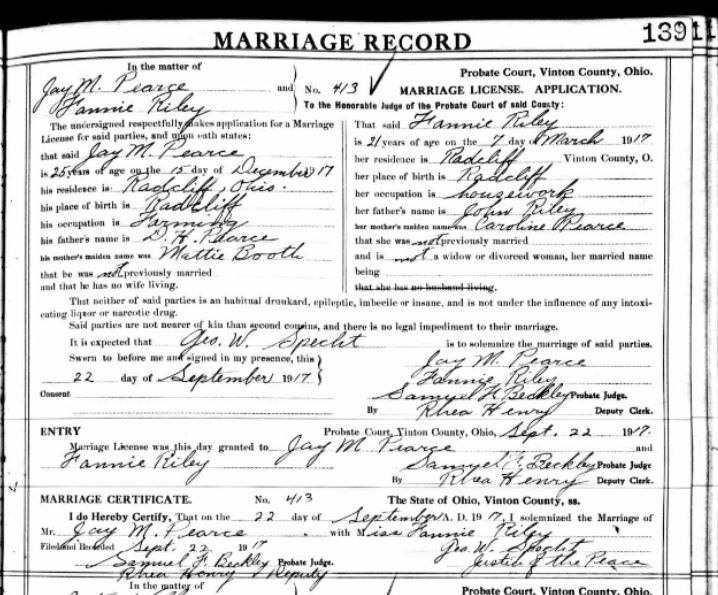 139
MARRIAGE RECORD
In the matter of
Jay M. Pearce and
Fannie Riley
No. 413
Probate Court, Vinton County, Ohio.
MARRIAGE LICENSE. APPLICATION.
To the Honorable Judge of the Probate Court of said County:
The undersigned respectfully makes application for a Marriage
License for said parties, and upon oath states:
that said Jay M. Pearce
is 25 years of age on the 15 day of December 1917
his residence is Radcliff, Ohio.
his place of birth is Radcliff
his occupation is Farming
his father's name is D. H. Pearce
his mother's maiden name was Mattie Booth
that he was not previously married
and that he has no wife living.
That said Fannie Riley
is 21 years of age on the 7 day of March 1917
her residence is Radcliff Vinton County, O.
her place of birth is Radcliff
her occupation is housework
her father's name is John Riley
her mother's maiden name was Caroline Pearce
that she was not previously married
and is not a widow or divorced woman, her married name
being
that she has no husband living.
That neither of said parties is an habitual drunkard, epileptic, imbecile or insane, and is not under the influence of any intoxi-
cating liquor or narcotic drug.
Said parties are not nearer of kin than second cousins, and there is no legal impediment to their marriage.
It is expected that Geo. W. Specht is to solemnize the marriage of said parties.
Sworn to before me and signed in my presence, this
22 day of September 1917
Jay M. Pearce
Fannie Riley
Consent
Samuel F. Beckley Probate Judge.
By Rhea Henry Deputy Clerk.
ENTRY
Probate Court, Vinton County, Ohio, Sept. 22 1917.
Marriage License was this day granted to Jay M. Pearce and
Fannie Riley
Samuel F. Beckley Probate Judge
By Rhea Henry Deputy Clerk.
MARRIAGE CERTIFICATE. No. 413 The State of Ohio, Vinton County, ss.
I do Hereby Certify, That on the 22 day of September A. D. 1917, I solemnized the Marriage of
Mr. Jay M. Pearce with Miss Fannie Riley
Filed and Recorded Sept. 22 1917
Geo. W. Specht
Samuel F. Beckley Probate Judge.
Justice of the Peace
Rhea Henry Deputy
In the matter of
Probate Court, Vinton County, Ohio.